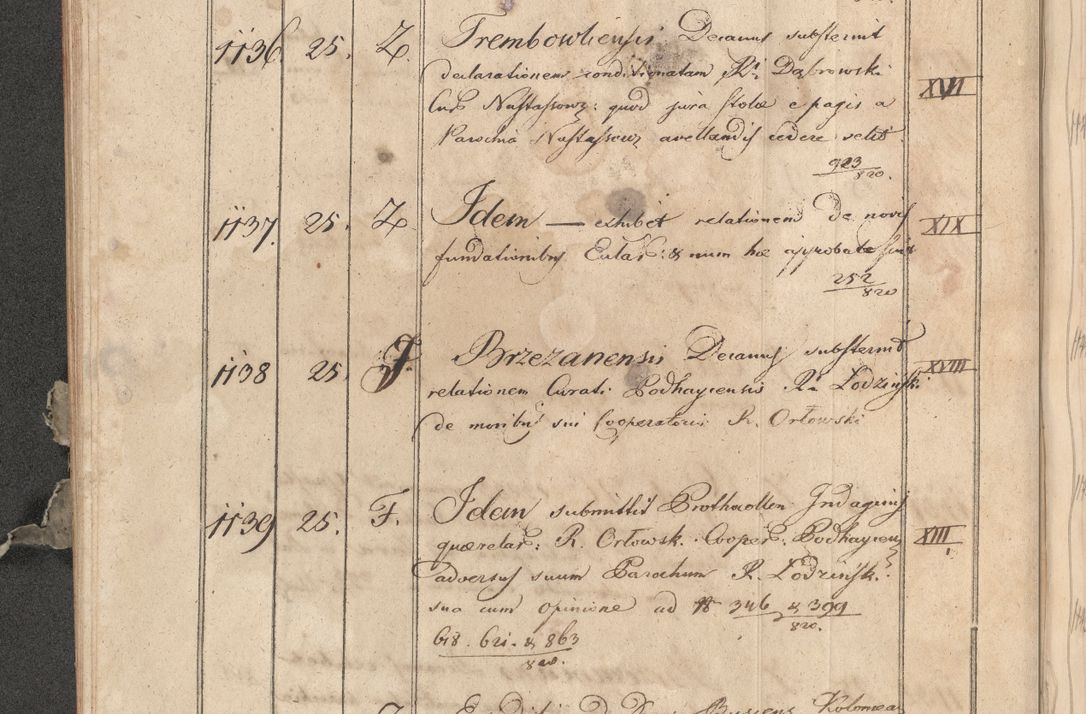 1136. 25. Z. Trembowliensis Decanus substernit
declarationem conditionatam Rdi Dąbrowski
Cur. Nastassow: quod jura stolae e pagis a
Parochia Nastassow avellandis cedere velit.
923/820.
XVII
1137. 25. Z. Idem — exhibet relationem de novis
fundationibus Eular: & num hae approbatae
252/820
XIX
1138 25. F. Brzezanensis Decanus substernit
relationem Curati Podhaycensis R. Lodziński
de moribus sui Cooperatoris R. Orłowski
XVIII
1139 25. F. Idem submittit Prothocollon Indaginis
quaerelar: R. Orłowsk. Cooper. Podhaycens
adversus suum Parochum R. Lodzińsk:
sua cum opinione ad N 346 & 399
820.
618. 621. & 863
820.
XIII